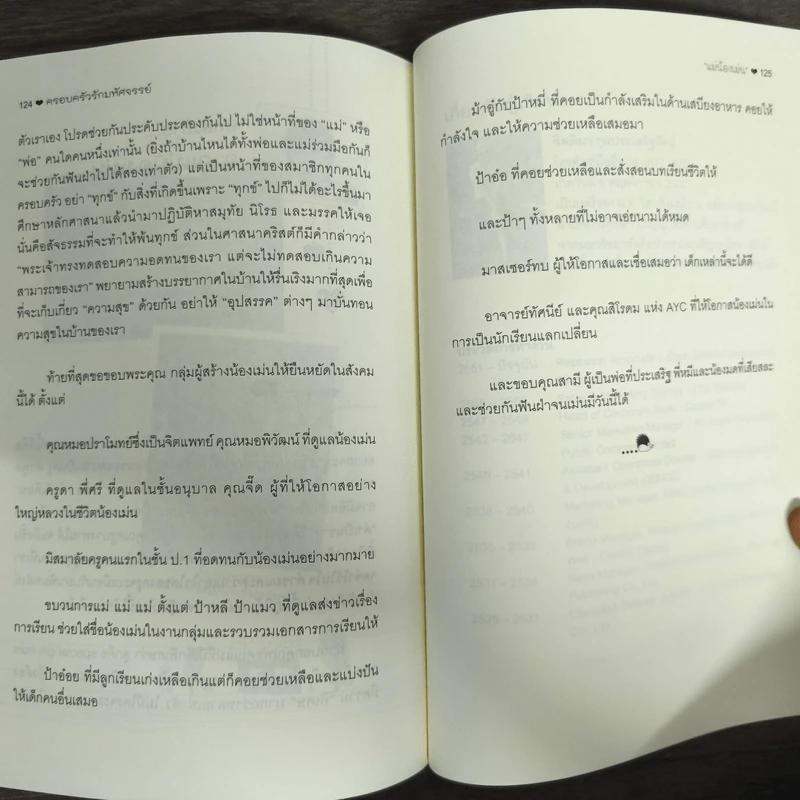 124 ❤ ครอบครัวรักมหัศจรรย์
ตัวเราเอง โปรดช่วยกันประคับประคองกันไป ไม่ใช่หน้าที่ของ "แม่" หรือ
"พ่อ" คนใดคนหนึ่งเท่านั้น (ยิ่งถ้าบ้านไหนได้ทั้งพ่อและแม่ร่วมมือกันก็
จะช่วยกันฟันฝ่าไปได้สองเท่าตัว) แต่เป็นหน้าที่ของสมาชิกทุกคนใน
ครอบครัว อย่า "ทุกข์" กับสิ่งที่เกิดขึ้นเพราะ "ทุกข์" ไปก็ไม่ได้อะไรขึ้นมา
ศึกษาหลักศาสนาแล้วนำมาปฏิบัติหาสมุทัย นิโรธ และมรรคให้เจอ
นั่นคือสัจธรรมที่จะทำให้พ้นทุกข์ ส่วนในศาสนาคริสต์ก็มีคำกล่าวว่า
"พระเจ้าทรงทดสอบความอดทนของเรา แต่จะไม่ทดสอบเกินความ
สามารถของเรา" พยายามสร้างบรรยากาศในบ้านให้รื่นเริงมากที่สุดเพื่อ
ที่จะเก็บเกี่ยว "ความสุข" ด้วยกัน อย่าให้ "อุปสรรค" ต่างๆ มาบั่นทอน
ความสุขในบ้านของเรา
ท้ายที่สุดขอขอบพระคุณ กลุ่มผู้สร้างน้องเม่นให้ยืนหยัดในสังคม
นี้ได้ ตั้งแต่
คุณหมอปราโมทย์ซึ่งเป็นจิตแพทย์ คุณหมอพิวัฒน์ ที่ดูแลน้องเม่น
ครูดา พี่ศรี ที่ดูแลในชั้นอนุบาล คุณจี๊ด ผู้ที่ให้โอกาสอย่าง
ใหญ่หลวงในชีวิตน้องเม่น
มิสมาลัยครูคนแรกในชั้น ป.1 ที่อดทนกับน้องเม่นอย่างมากมาย
ขบวนการแม่ แม่ แม่ ตั้งแต่ ป้าหลี ป้าแมว ที่ดูแลส่งข่าวเรื่อง
การเรียน ช่วยใส่ชื่อน้องเม่นในงานกลุ่มและรวบรวมเอกสารการเรียนให้
ป้าอ๋อย ที่มีลูกเรียนเก่งเหลือเกินแต่ก็คอยช่วยเหลือและแบ่งปัน
ให้เด็กคนอื่นเสมอ
"แม่น้องเม่น" ❤ 125
ม้าอู๋กับป้าหมี่ ที่คอยเป็นกำลังเสริมในด้านเสบียงอาหาร คอยให้
กำลังใจ และให้ความช่วยเหลือเสมอมา
ป้าอ๋อ ที่คอยช่วยเหลือและสั่งสอนบทเรียนชีวิตให้
และป้าๆ ทั้งหลายที่ไม่อาจเอ่ยนามได้หมด
มาสเซอร์ทบ ผู้ให้โอกาสและเชื่อเสมอว่า เด็กเหล่านี้จะได้ดี
อาจารย์ทัศนีย์ และคุณสิโรดม แห่ง AYC ที่ให้โอกาสน้องเม่นใน
การเป็นนักเรียนแลกเปลี่ยน
และขอบคุณสามี ผู้เป็นพ่อที่ประเสริฐ พี่หมีและน้องมดที่เสียสละ
และช่วยกันฟันฝ่าจนเม่นมีวันนี้ได้
....